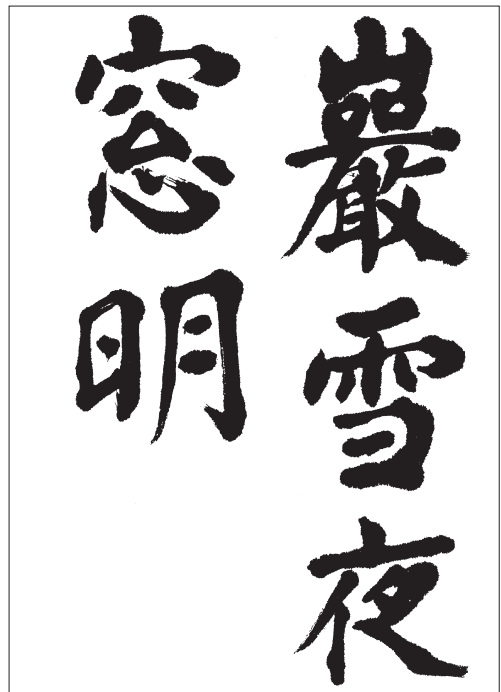 巖雪夜
窓明